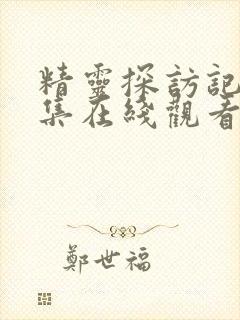 精靈探訪記
集在綫觀看
鄭世福